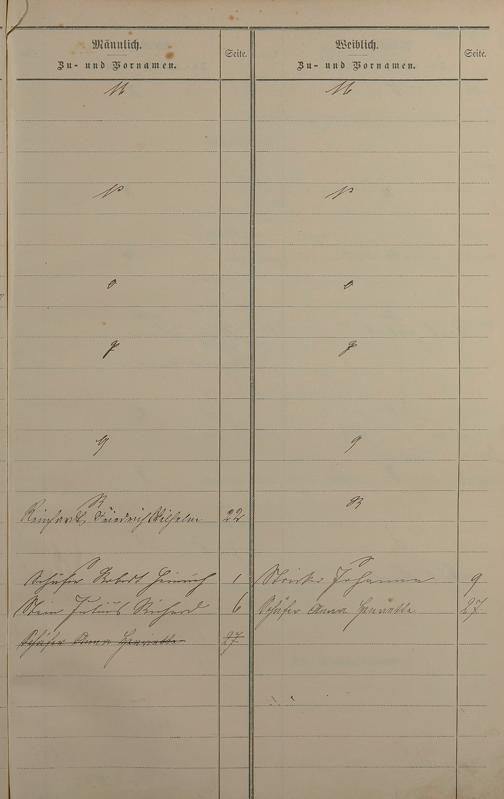 Männlich.
Zu- und Vornamen.
Seite.
Weiblich.
Zu- und Vornamen.
Seite.
M
M
N
N
O
O
P
P
Q
Q
R
R
Reinhardt, Friedrich Wilhelm 22
S
S
Schäfer Robert Heinrich 1
Stricker Johanna 9
Stein Julius Richard 6
Schäfer Anna Henriette 27
Schäfer Anna Henriette 27